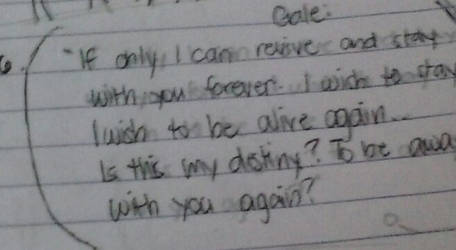 Gale:
6. "If only, I can revive and stay
with you forever. I wish to stay
I wish to be alive again...
Is this my destiny? To be awa
with you again?